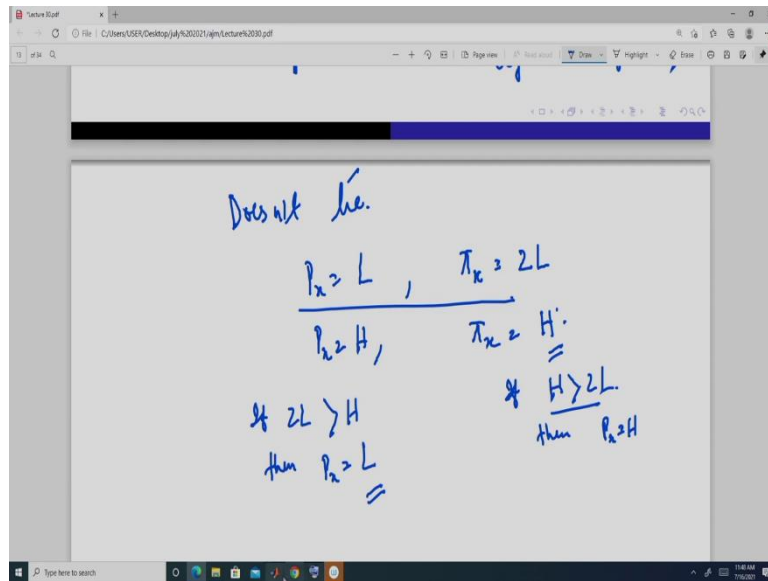 Lecture 30.pdf
File | C:/Users/USER/Desktop/july%202021/ajm/Lecture%2030.pdf
13 of 34 Page view Read aloud Draw Highlight Erase
Does not lie.
Px = L, πx = 2L
Px = H, πx = H.
If 2L > H
then Px = L
If H > 2L.
then Px = H
Type here to search
11:48 AM
7/16/2021